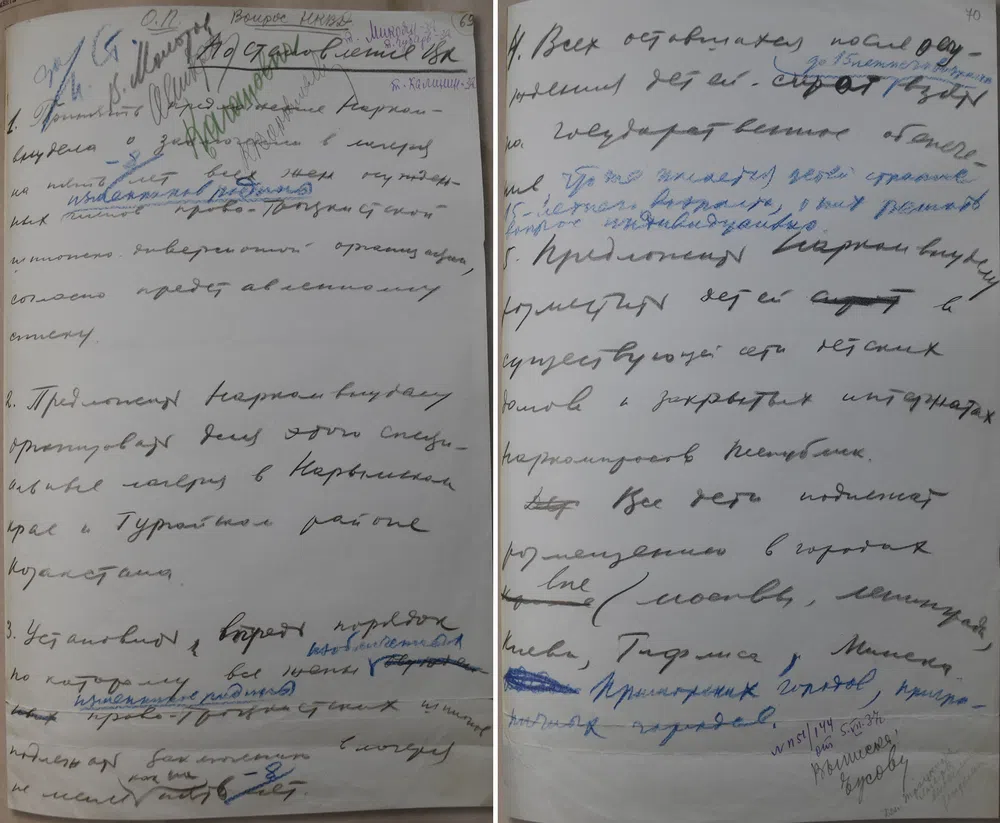 О.П. Вопрос НКВД
69
за
Ст
В. Молотов
т. Микоян - за
т. Чубарь - за
Постановление ЦК
Каганович
т. Калинин - за
1. Принять предложение Нарком-
внудела о заключении в лагеря
на пять – 8 лет всех жен осужден-
ных изменников родины
членов право-троцкистской
шпионско-диверсионной организации,
согласно представленному
списку.
2. Предложить Наркомвнуделу
организовать для этого специ-
альные лагеря в Нарымском
крае и Тургайском районе
Казахстана.
3. Установить впредь порядок
по которому все жены изобличенных
изменников родины
право-троцкистских шпионов
подлежат заключению в лагеря
не менее как на пять – 8 лет.
70
4. Всех оставшихся после осу-
до 15-летнего возраста
ждения детей-сирот взять
на государственное обеспече-
ние, что же касается детей старше
15-летнего возраста, о них решать
вопрос индивидуально.
5. Предложить Наркомвнуделу
разместить детей сирот в
существующей сети детских
домов и закрытых интернатах
наркомпросов республик.
Все дети подлежат
размещению в городах
вне (Москвы, Ленинграда,
Киева, Тифлиса, Минска
Приморских городов, пригра-
ничных городов.
№ П51/144
от 5.VII.37
Выписка:
Ежову